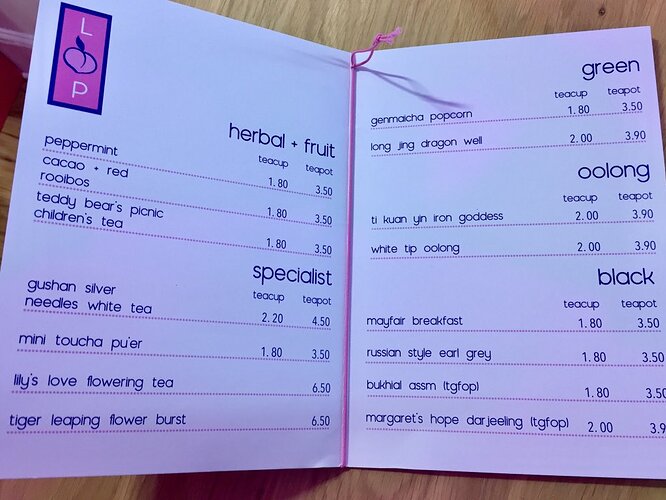 L
P
herbal + fruit
teacup teapot
peppermint 1.80 3.50
cacao + red
rooibos 1.80 3.50
teddy bear's picnic
children's tea 1.80 3.50
specialist
teacup teapot
gushan silver
needles white tea 2.20 4.50
mini toucha pu'er 1.80 3.50
lily's love flowering tea 6.50
tiger leaping flower burst 6.50
green
teacup teapot
genmaicha popcorn 1.80 3.50
long jing dragon well 2.00 3.90
oolong
teacup teapot
ti kuan yin iron goddess 2.00 3.90
white tip oolong 2.00 3.90
black
teacup teapot
mayfair breakfast 1.80 3.50
russian style earl grey 1.80 3.50
bukhial assm (tgfop) 1.80 3.50
margaret's hope darjeeling (tgfop) 2.00 3.9